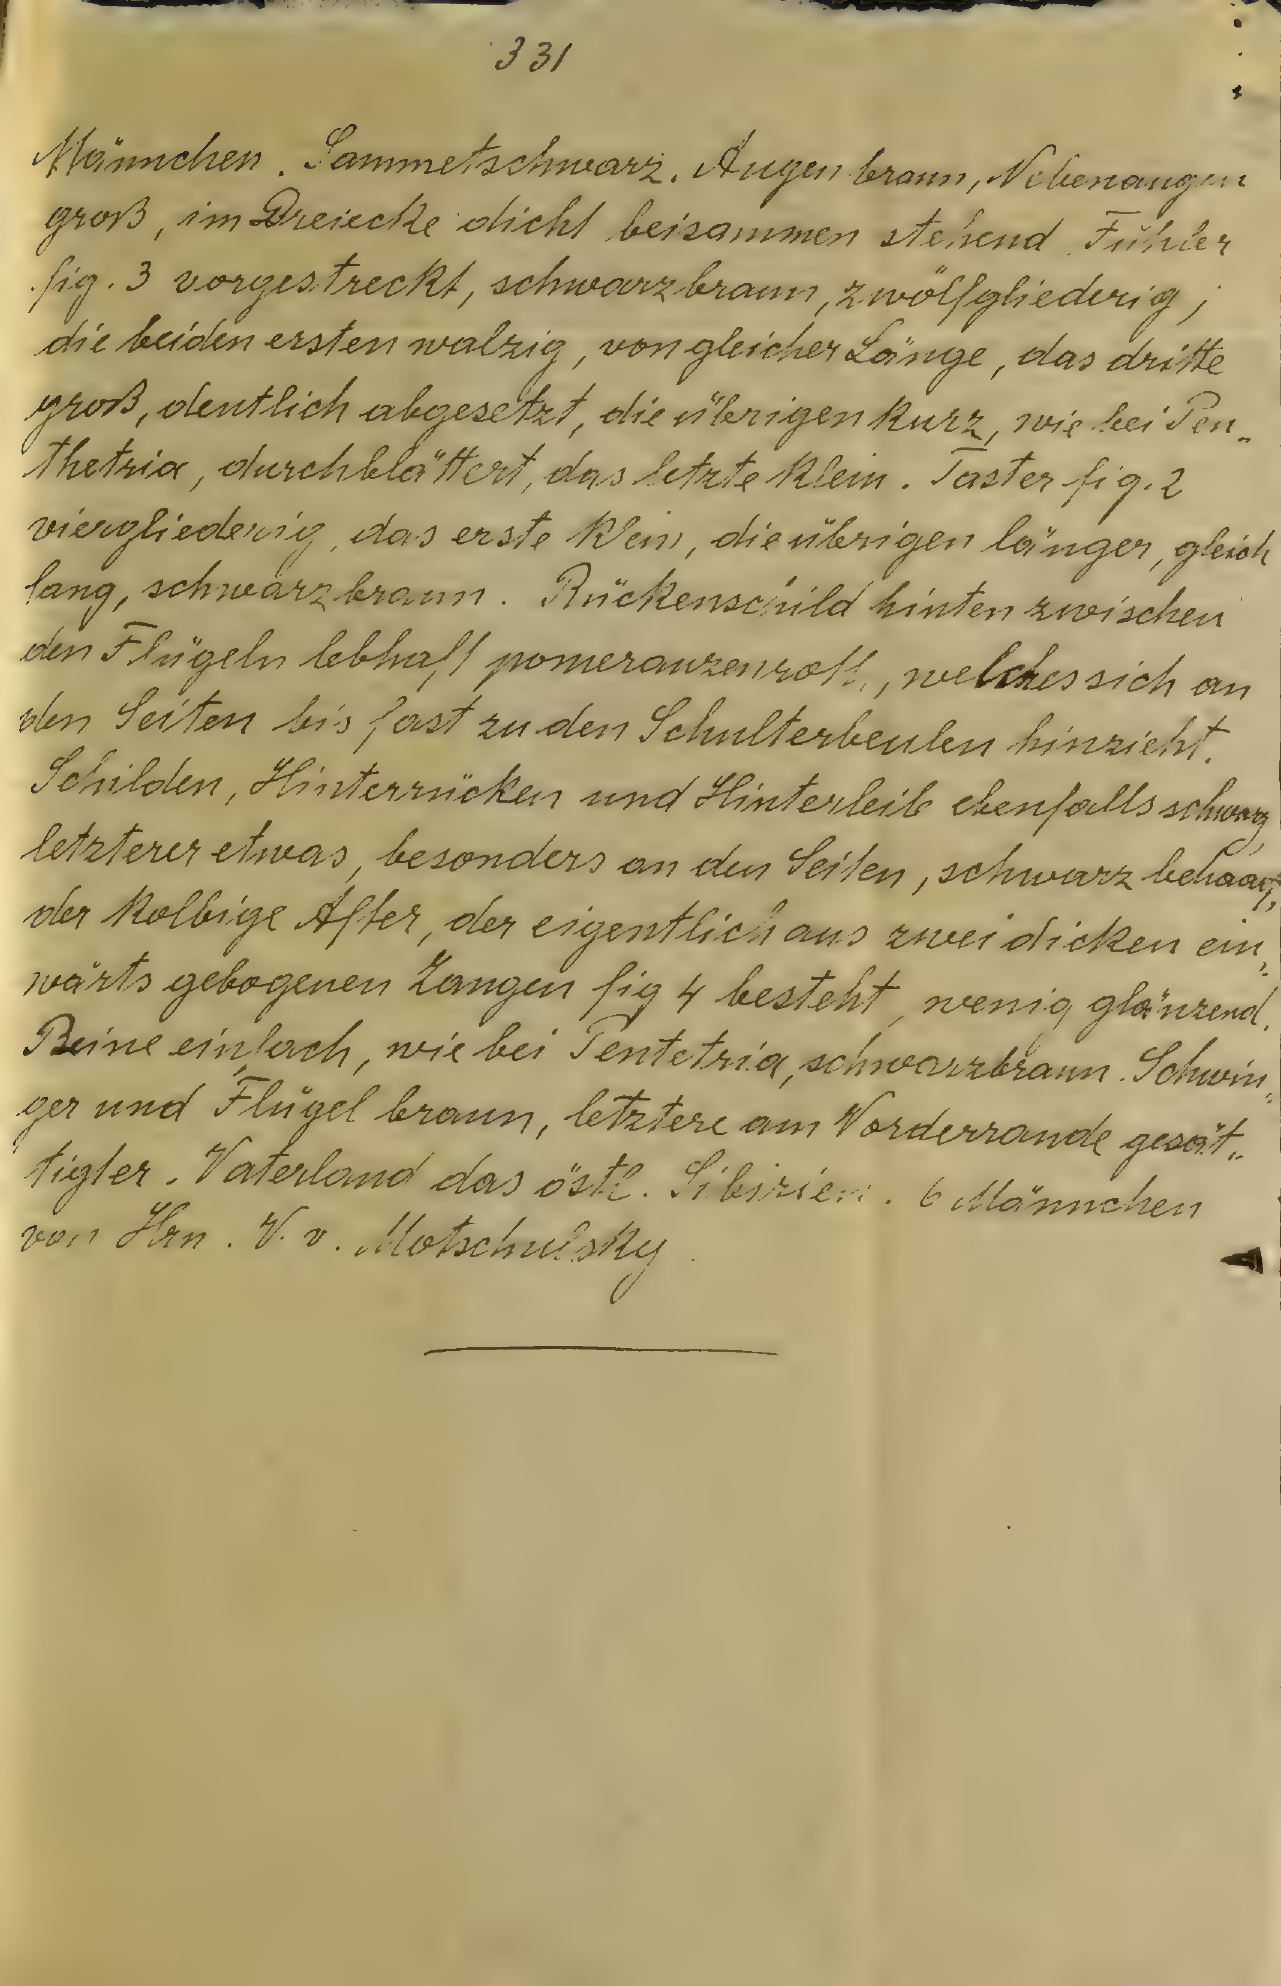 331
Männchen. Sammetschwarz. Augen braun, Nebenaugen
groß, im Dreiecke dicht beisammen stehend. Fühler
fig. 3 vorgestreckt, schwarzbraun, zwölfgliederig;
die beiden ersten walzig, von gleicher Länge, das dritte
groß, deutlich abgesetzt, die übrigen kurz, wie bei Pen„
thetria, durchblättert, das letzte klein. Taster fig. 2
viergliederig, das erste klein, die übrigen länger, gleich
lang, schwarzbraun. Rückenschild hinten zwischen
den Flügeln lebhaft pomeranzenroth, welches sich an
den Seiten bis fast zu den Schulterbeulen hinzieht.
Schilden, Hinterrücken und Hinterleib ebenfalls schwarz,
letzterer etwas, besonders an den Seiten, schwarz behaart,
der kolbige After, der eigentlich aus zwei dicken ein„
wärts gebogenen Zangen fig 4 besteht, wenig glänzend.
Beine einfach, wie bei Pentetria, schwarzbraun. Schwin„
ger und Flügel braun, letztere am Vorderrande gesät„
tigter. Vaterland das östl. Sibirien. 6 Männchen
von Hrn. V. v. Motschulsky.